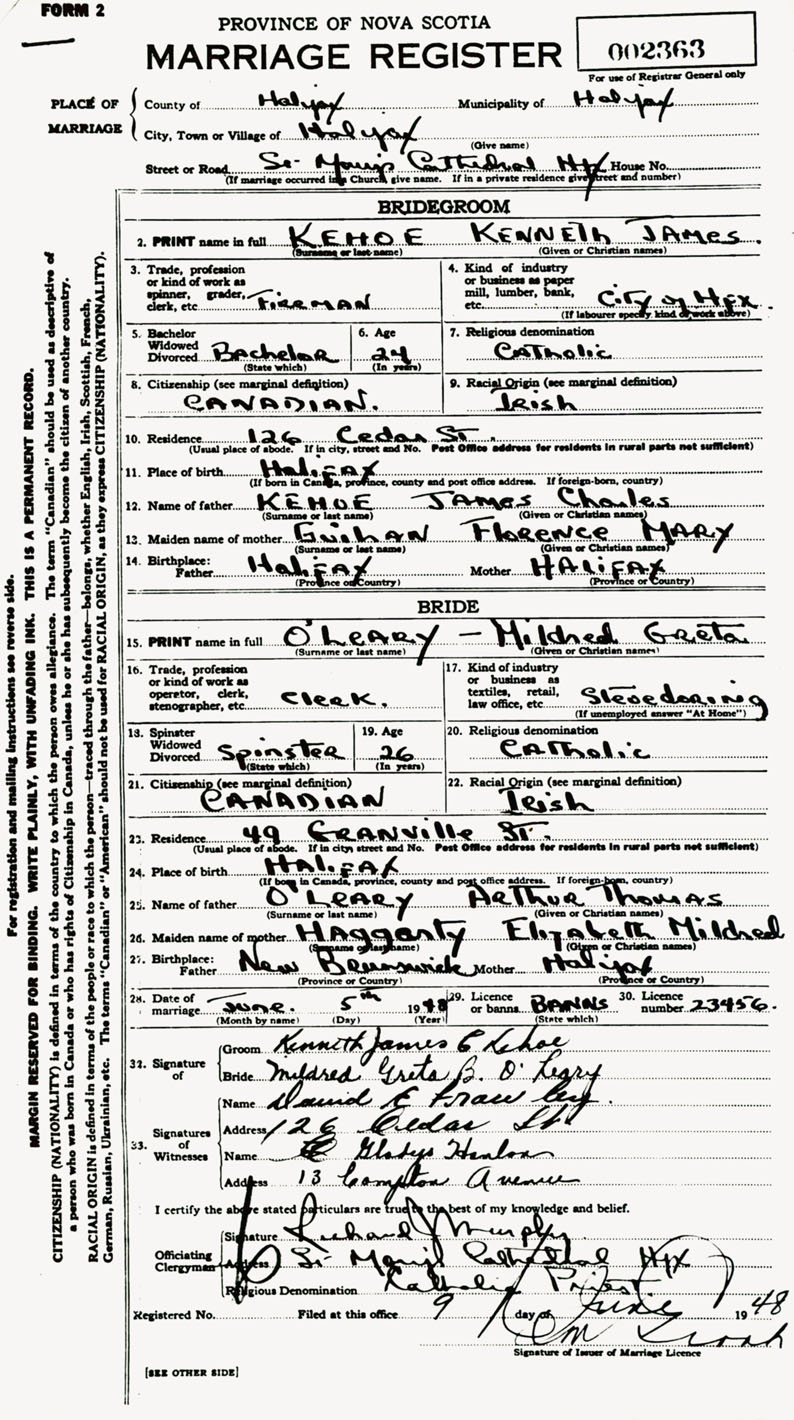 FORM 2
PROVINCE OF NOVA SCOTIA
MARRIAGE REGISTER
002363
For use of Registrar General only
PLACE OF MARRIAGE
County of Halifax Municipality of Halifax
City, Town or Village of Halifax
(Give name)
Street or Road St. Mary's Cathedral Hfx House No.
(If marriage occurred in a Church, give name. If in a private residence give street and number)
BRIDEGROOM
2. PRINT name in full KEHOE KENNETH JAMES.
(Surname or last name) (Given or Christian names)
3. Trade, profession or kind of work as spinner, grader, clerk, etc. FIREMAN
4. Kind of industry or business as paper mill, lumber, bank, etc. City of Hfx.
(If labourer specify kind of work above)
5. Bachelor Widowed Divorced Bachelor
(State which)
6. Age 24
(In years)
7. Religious denomination Catholic
8. Citizenship (see marginal definition) CANADIAN.
9. Racial Origin (see marginal definition) Irish
10. Residence 126 Cedar St.
(Usual place of abode. If in city, street and No. Post Office address for residents in rural parts not sufficient)
11. Place of birth Halifax
(If born in Canada, province, county and post office address. If foreign-born, country)
12. Name of father KEHOE JAMES Charles
(Surname or last name) (Given or Christian names)
13. Maiden name of mother Florence MARY
(Surname or last name) (Given or Christian names)
14. Birthplace: Father Halifax Mother HALIFAX
(Province or Country) (Province or Country)
BRIDE
15. PRINT name in full O'LEARY - Mildred Greta
(Surname or last name) (Given or Christian names)
16. Trade, profession or kind of work as operator, clerk, stenographer, etc. Clerk.
17. Kind of industry or business as textiles, retail, law office, etc. Stevedoring
(If unemployed answer "At Home")
18. Spinster Widowed Divorced Spinster
(State which)
19. Age 26
(In years)
20. Religious denomination Catholic
21. Citizenship (see marginal definition) CANADIAN
22. Racial Origin (see marginal definition) Irish
23. Residence 49 GRANVille ST.
(Usual place of abode. If in city, street and No. Post Office address for residents in rural parts not sufficient)
24. Place of birth HALIFAX
(If born in Canada, province, county and post office address. If foreign-born, country)
25. Name of father O'LEARY ARTHUR Thomas
(Surname or last name) (Given or Christian names)
26. Maiden name of mother Haggarty Elizabeth Mildred
(Surname or last name) (Given or Christian names)
27. Birthplace: Father New Brunswick Mother Halifax
(Province or Country) (Province or Country)
28. Date of marriage June. 5th 1948
(Month by name) (Day) (Year)
29. Licence or banns BANNS
(State which)
30. Licence number 23456.
32. Signature of
Groom Kenneth James C Kehoe
Bride Mildred Greta B. O'Leary
33. Signatures of Witnesses
Name David E
Address 126 Cedar St
Name Gladys Hanlon
Address 13 Compton Avenue
I certify the above stated particulars are true to the best of my knowledge and belief.
Officiating Clergyman
Signature Richard J Murphy
Address St. Mary's Cathedral Hfx
Religious Denomination Catholic Priest
Registered No. Filed at this office 9 day of June 1948
Signature of Issuer of Marriage Licence
[SEE OTHER SIDE]
For registration and mailing instructions see reverse side.
MARGIN RESERVED FOR BINDING. WRITE PLAINLY, WITH UNFADING INK. THIS IS A PERMANENT RECORD.
CITIZENSHIP (NATIONALITY) is defined in terms of the country to which the person owes allegiance. The term "Canadian" should be used as descriptive of
a person who was born in Canada or who has rights of Citizenship in Canada, unless he or she has subsequently become the citizen of another country.
RACIAL ORIGIN is defined in terms of the people or race to which the person—traced through the father—belongs, whether English, Irish, Scottish, French,
German, Russian, Ukrainian, etc. The terms "Canadian" or "American" should not be used for RACIAL ORIGIN, as they express CITIZENSHIP (NATIONALITY).